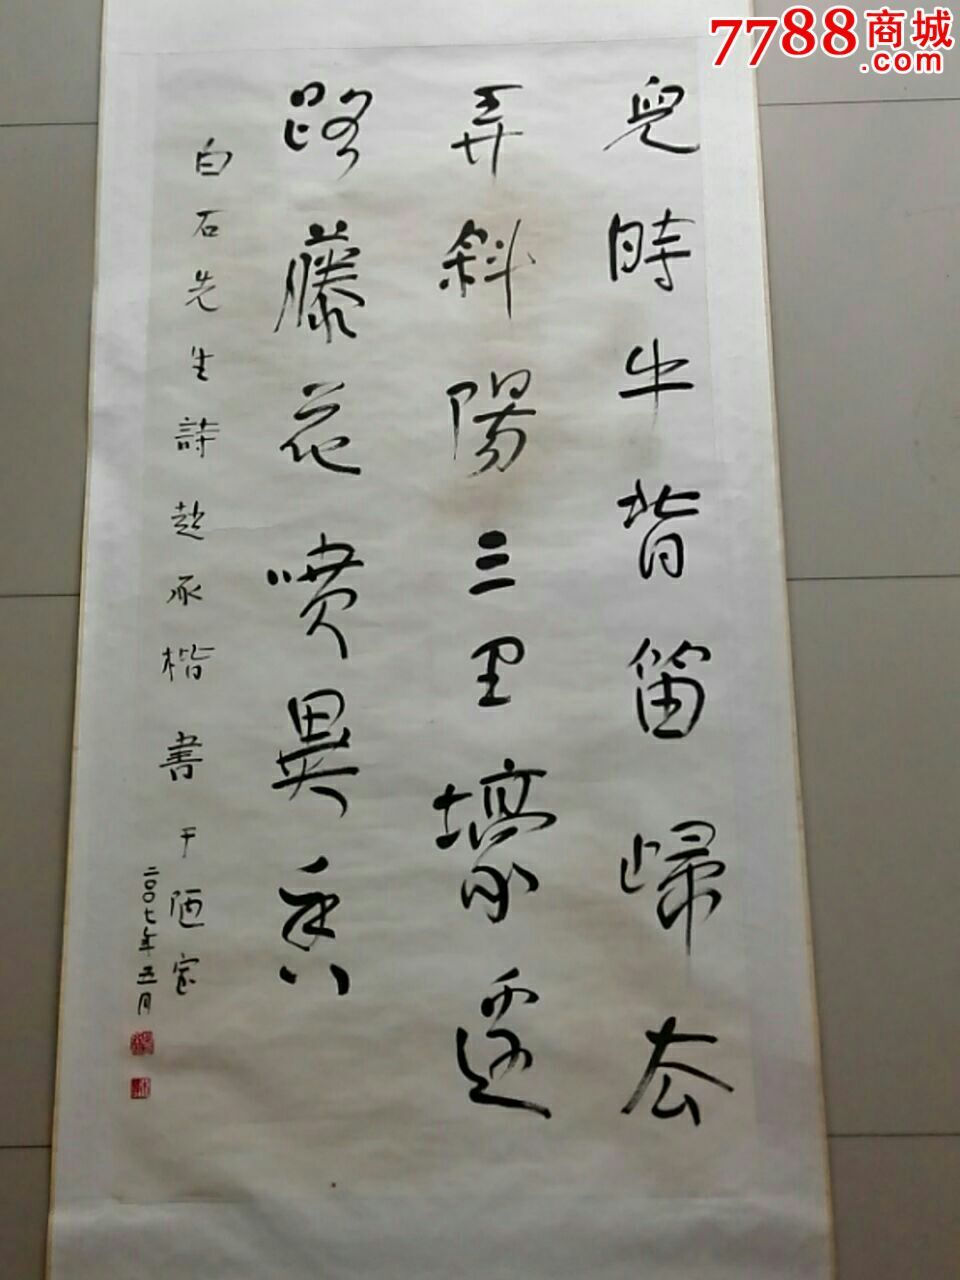 7788商城
.com
兒時牛背笛歸去
弄斜陽三里壕邊
路藤花噴異香
白石先生詩赵承楷書于陋室
二〇〇七年五月